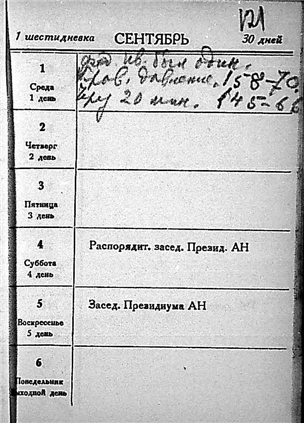 121
1 шестидневка СЕНТЯБРЬ 30 дней
1
Среда
1 день
был один.
Кров. давление. 158-70.
20 мин. 145-60
2
Четверг
2 день
3
Пятница
3 день
4
Суббота
4 день
Распорядит. засед. Презид. АН
5
Воскресенье
5 день
Засед. Президиума АН
6
Понедельник
выходной день